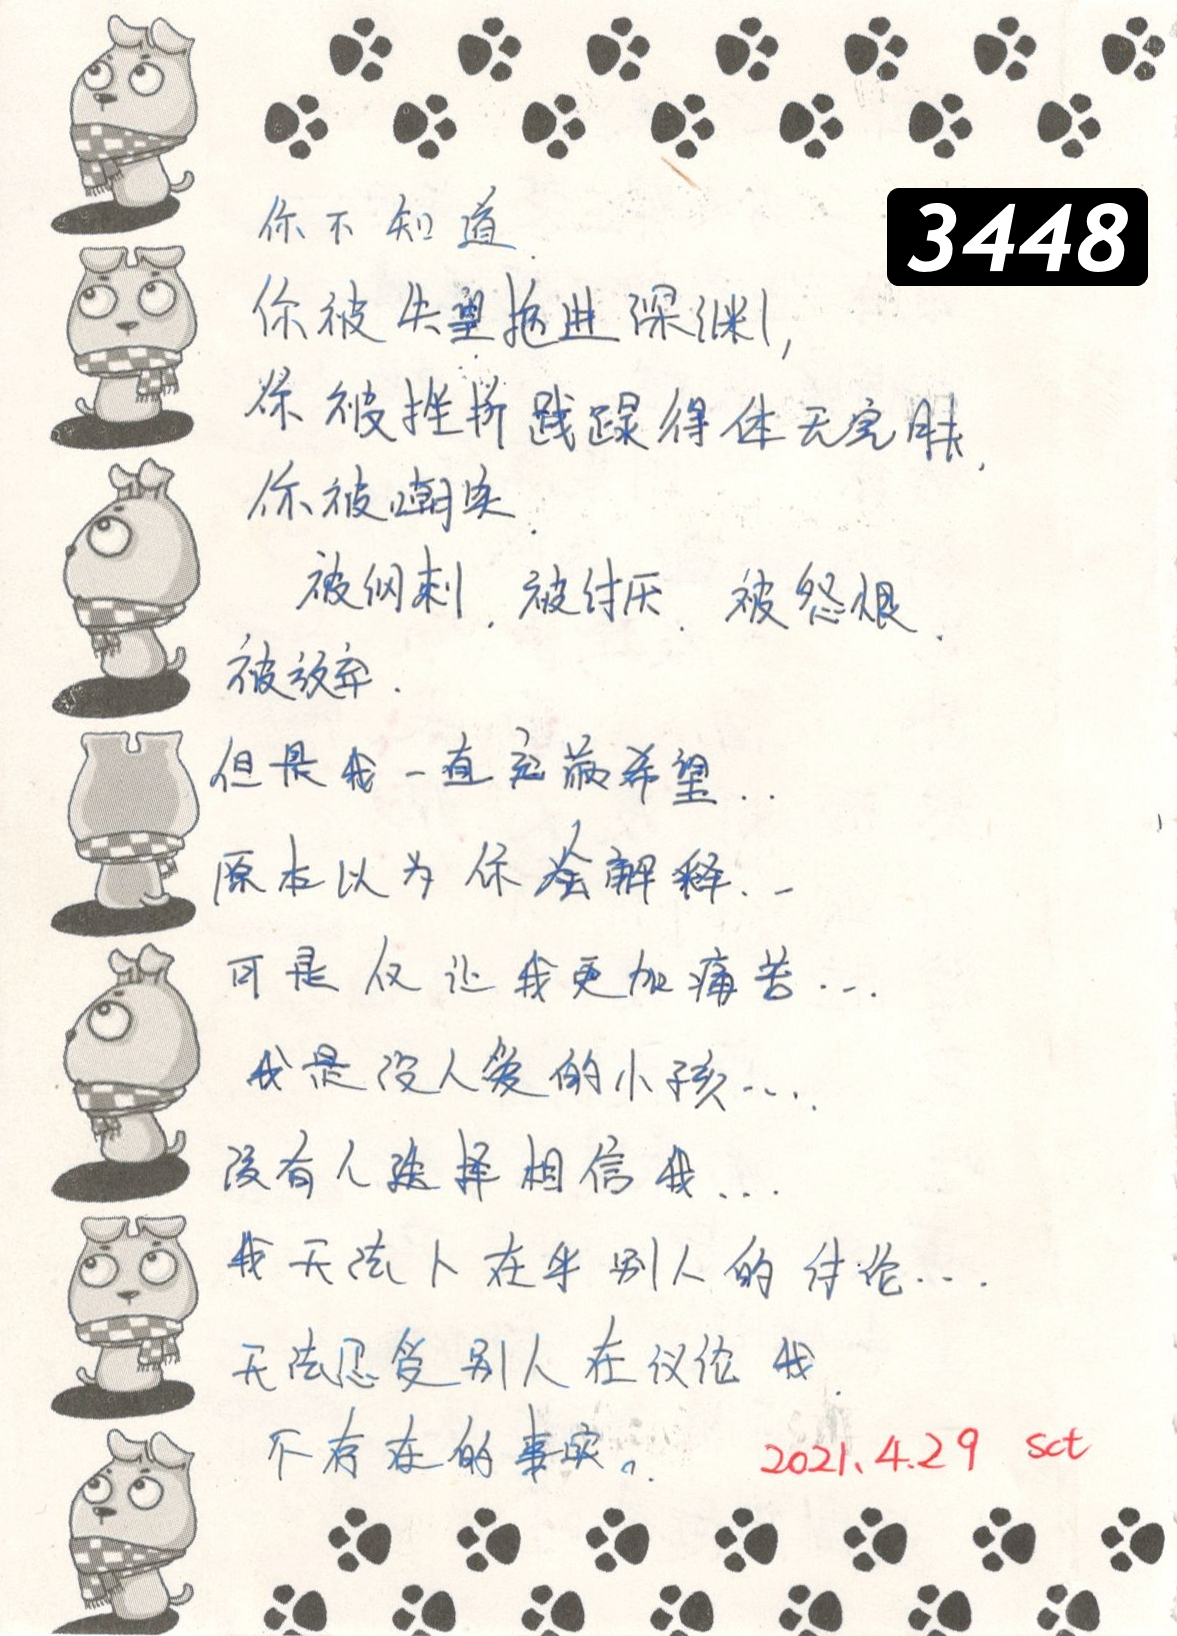 3448
你不知道.
你被失望拖进深渊,
你被挫折践踩得体无完肤,
你被嘲笑.
被讽刺.被讨厌.被怨恨.
被放弃.
但是我一直宝藏希望..
原本以为你会解释..
可是仅让我更加痛苦...
我是没人爱的小孩....
没有人选择相信我...
我无法卜在乎别人的讨论...
无法忍受别人在议论我.
不存在的事实。.
2021.4.29 sct